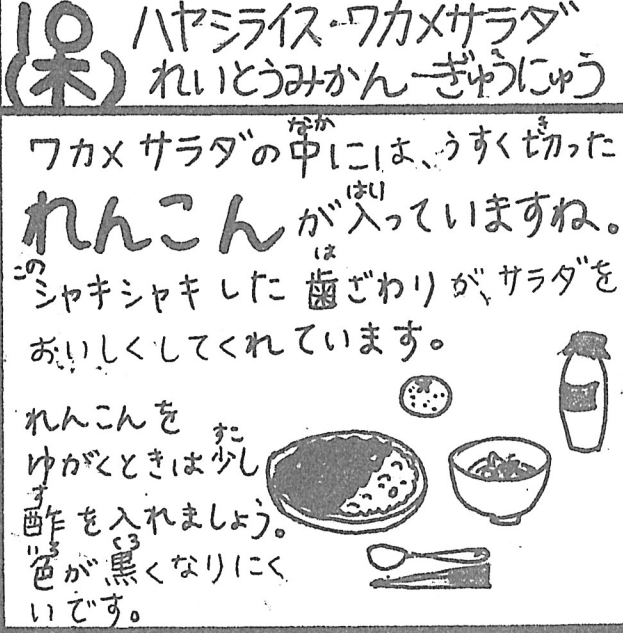 19(木) ハヤシライス・ワカメサラダ
れいとうみかん ぎゅうにゅう
ワカメサラダの中には、うすく切った
れんこんが入っていますね。
このシャキシャキした歯ざわりが、サラダを
おいしくしてくれています。
れんこんを
ゆがくときは少し
酢を入れましょう。
色が黒くなりにく
いです。